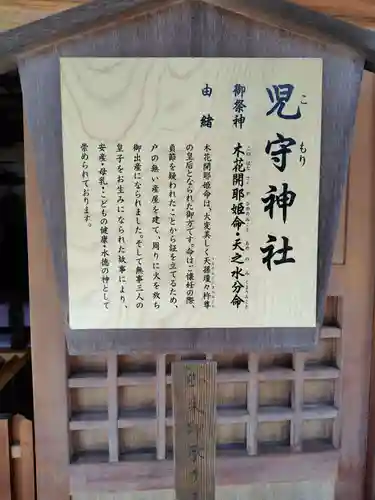 児守神社
こもり
御祭神 木花開耶姫命・天之水分命
このはなさくやひめのみこと あめのみくまりのみこと
由緒
木花開耶姫命は、大変美しく天孫瓊々杵尊
の皇后となられた御方です。命はご懐妊の際、
貞節を疑われたことから証を立てるため、
戸の無い産屋を建て、周りに火を放ち
御出産になられました。そして無事三人の
皇子をお生みになられた故事により、
安産・母乳・こどもの健康・水徳の神として
崇められております。